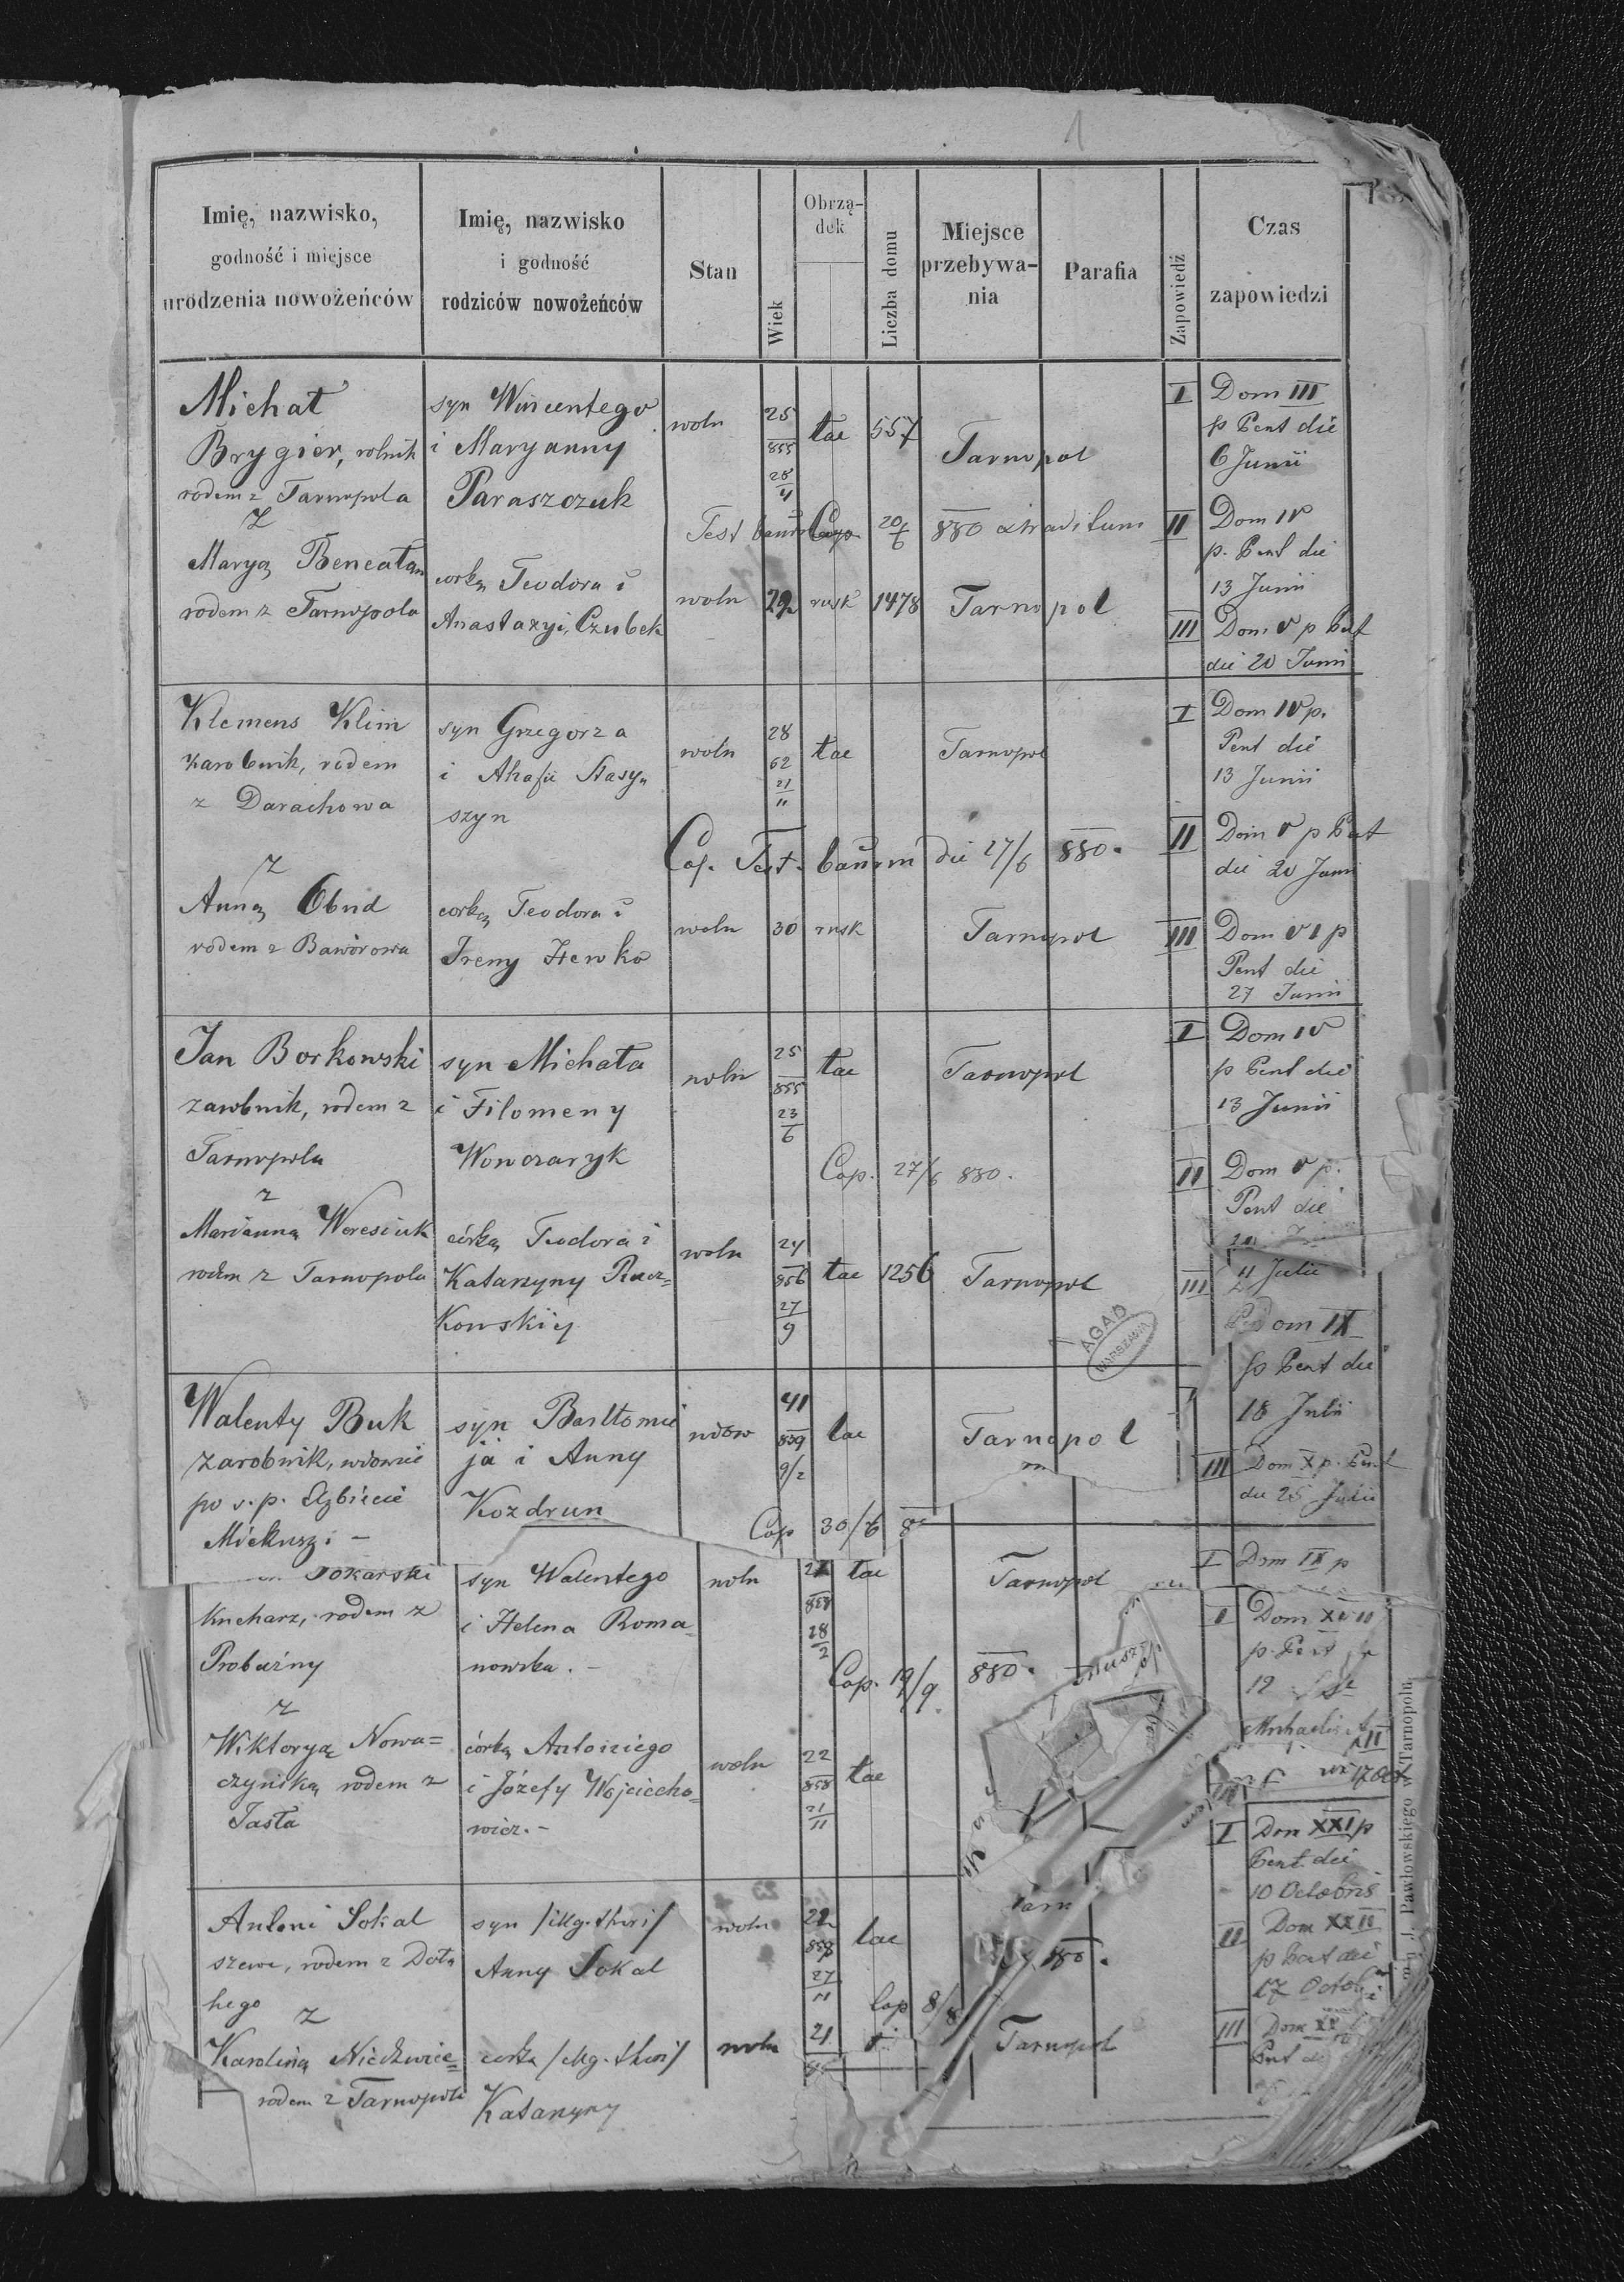 1
Imię, nazwisko,
godność i miejsce
urodzenia nowożeńców
Imię, nazwisko
i godność
rodziców nowożeńców
Stan
Wiek
Obrzą-
dek
Liczba domu
Miejsce
przebywa-
nia
Parafia
Zapowiedź
Czas
zapowiedzi
Michał
Brygier, rolnik
rodem z Tarnopola
z
Maryą Beneatam
rodem z Tarnopola
syn Wincentego
i Maryanny
Paraszczuk
corką Teodora i
Anastazyi Czubek
woln
25
855
28/4
łac
557
Tarnopol
Test Cop. 20/6 880
woln
22
rusk
1478
Tarnopol
I
Dom III
p Pent die
6 Junii
II
Dom IV
p. Pent die
13 Junii
III
Dom V p Pent
die 20 Junii
Klemens Klim
zarobnik, rodem
z Darachowa
z
Anną Obud
rodem z Baworowa
syn Grzegorza
i Ahafii Stasy
szyn
corką Teodora i
Ireny Hewko
woln
28
62
21/11
łac
Tarnopol
Cop. Test. bannorum die 27/6 880.
woln
30
rusk
Tarnopol
I
Dom IV p.
Pent die
13 Junii
II
Dom V p Pent
die 20 Junii
III
Dom VI p
Pent die
27 Junii
Jan Borkowski
zarobnik, rodem z
Tarnopola
z
Marianną Weresiuk
rodem z Tarnopola
syn Michała
i Filomeny
Wonczaryk
córką Teodora i
Katarzyny Racz=
kowskiy
woln
25
855
23/6
łac
Tarnopol
Cop. 27/6 880.
woln
24
856
27/9
łac
1256
Tarnopol
I
Dom IV
p Pent die
13 Junii
II
Dom V p.
Pent die
III
4 Julii
Dom IX
p Pent die
18 Julii
III
Dom X p. Pent
die 25 Julii
AGAD
WARSZAWA
Walenty Buk
zarobnik, wdowiec
po ś.p. Elżbiecie
Mickuszi –
syn Bartłomie
ja i Anny
Kozdrun
wdow
41
839
9/2
łac
Tarnopol
Cop 30/6
Tokarski
Kucharz, rodem z
Probużny
z
Wiktoryą Nowa=
czyńską rodem z
Jasła
syn Walentego
i Helena Roma=
nowska. –
córką Antoniego
i Józefy Wojciecho=
wicz. –
woln
858
28/2
łac
Tarnopol
Cop. 19/9 880.
woln
22
858
21/11
łac
I
Dom IX p
I
Dom XVII
p. Pent
12
17 Oct
Antoni Sokal
szewc, rodem z
hego
z
Karoliną Niedzwie=
rodem z Tarnopola
syn /illg. thori/
Anny Sokal
corka /illg. thori/
Katarzyny
woln
22
858
27/11
łac
Tarn
Cop 8/8
880.
woln
21
Tarnopol
I
Dom XXI p
Pent. die
10 Octobris
II
Dom XXII
p Pent die
17 Octob
III
Dom XX
Pent
J. Pawłowskiego w Tarnopolu